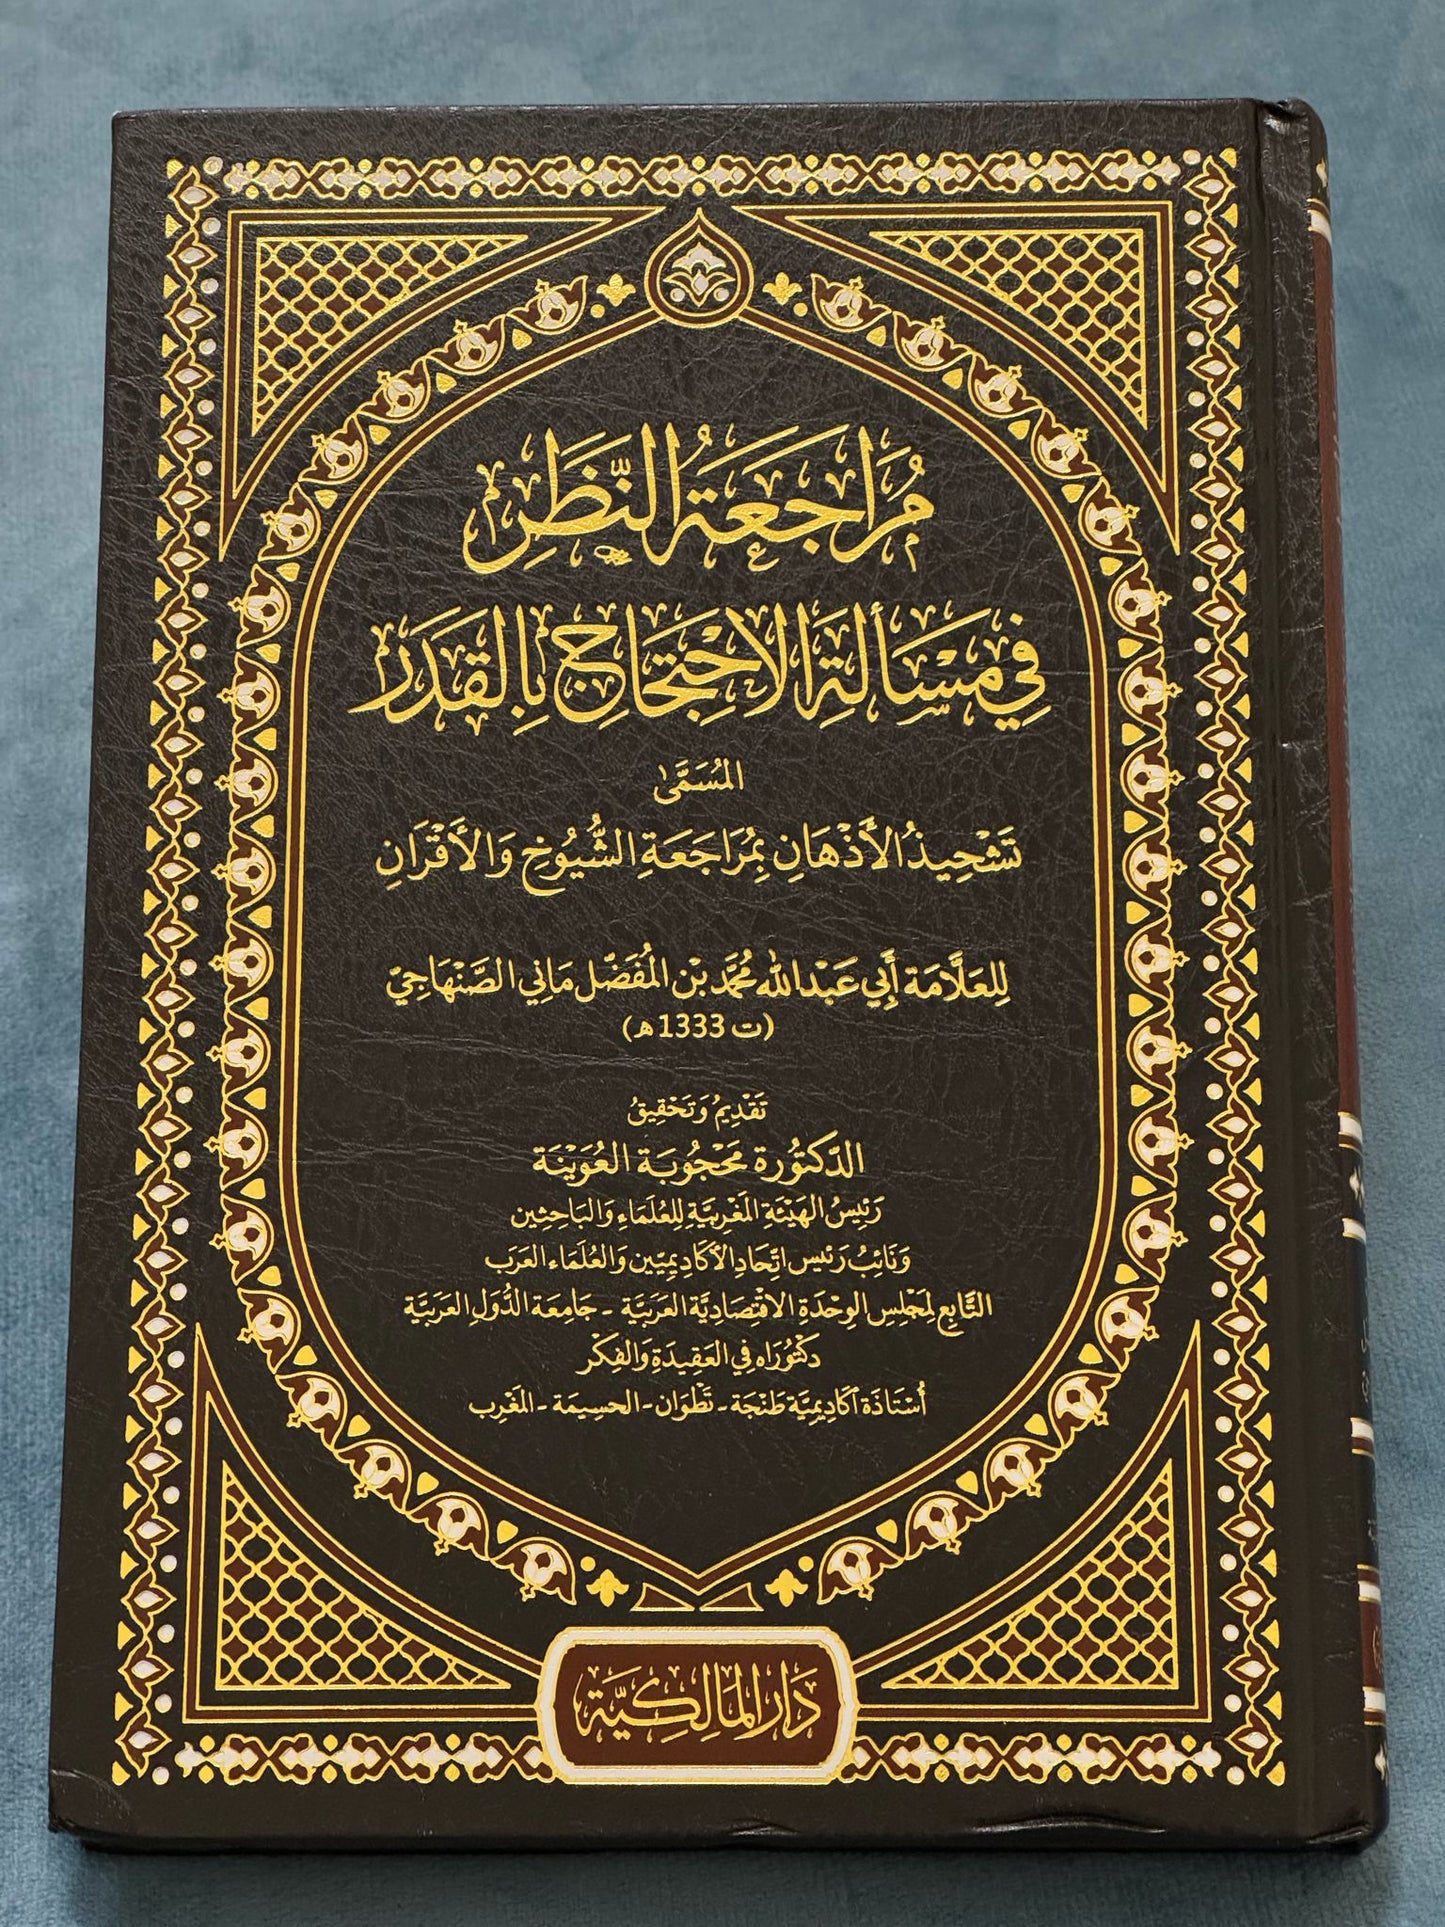 مُرَاجَعَةُ النَّظَرِ
فِي مَسْأَلَةِ الِاحْتِجَاجِ بِالقَدَرِ
المُسَمَّى
تَشْحِيذُ الأَذْهَانِ بِمُرَاجَعَةِ الشُّيُوخِ وَالأَقْرَانِ
لِلعَلَّامَة أَبِي عَبْدِ اللَّه مُحَمَّد بْن المُفَضَّل مَانِي الصَّنْهَاجِيّ
(ت 1333 هـ)
تَقْدِيمُ وَتَحْقِيقُ
الدَّكْتُورَة مَحْجُوبَة العُوَيْنَة
رَئِيسُ الهَيْئَةِ المَغْرِبِيَّةِ لِلعُلَمَاءِ وَالبَاحِثِين
وَنَائِبُ رَئِيس اتِّحَادِ الأَكَادِيمِيِّين وَالعُلَمَاء العَرَب
التَّابِع لمَجْلِس الوِحْدَةِ الاقْتِصَادِيَّة العَرَبِيَّة - جَامِعَة الدُّوَل العَرَبِيَّة
دكْتُورَاه فِي العَقِيدَةِ وَالفِكْر
أُسْتَاذَة أكَادِيمِيَّة طَنْجَة - تَطْوَان - الحسِيمَة - المَغْرِب
دَارُ المَالِكِيَّة